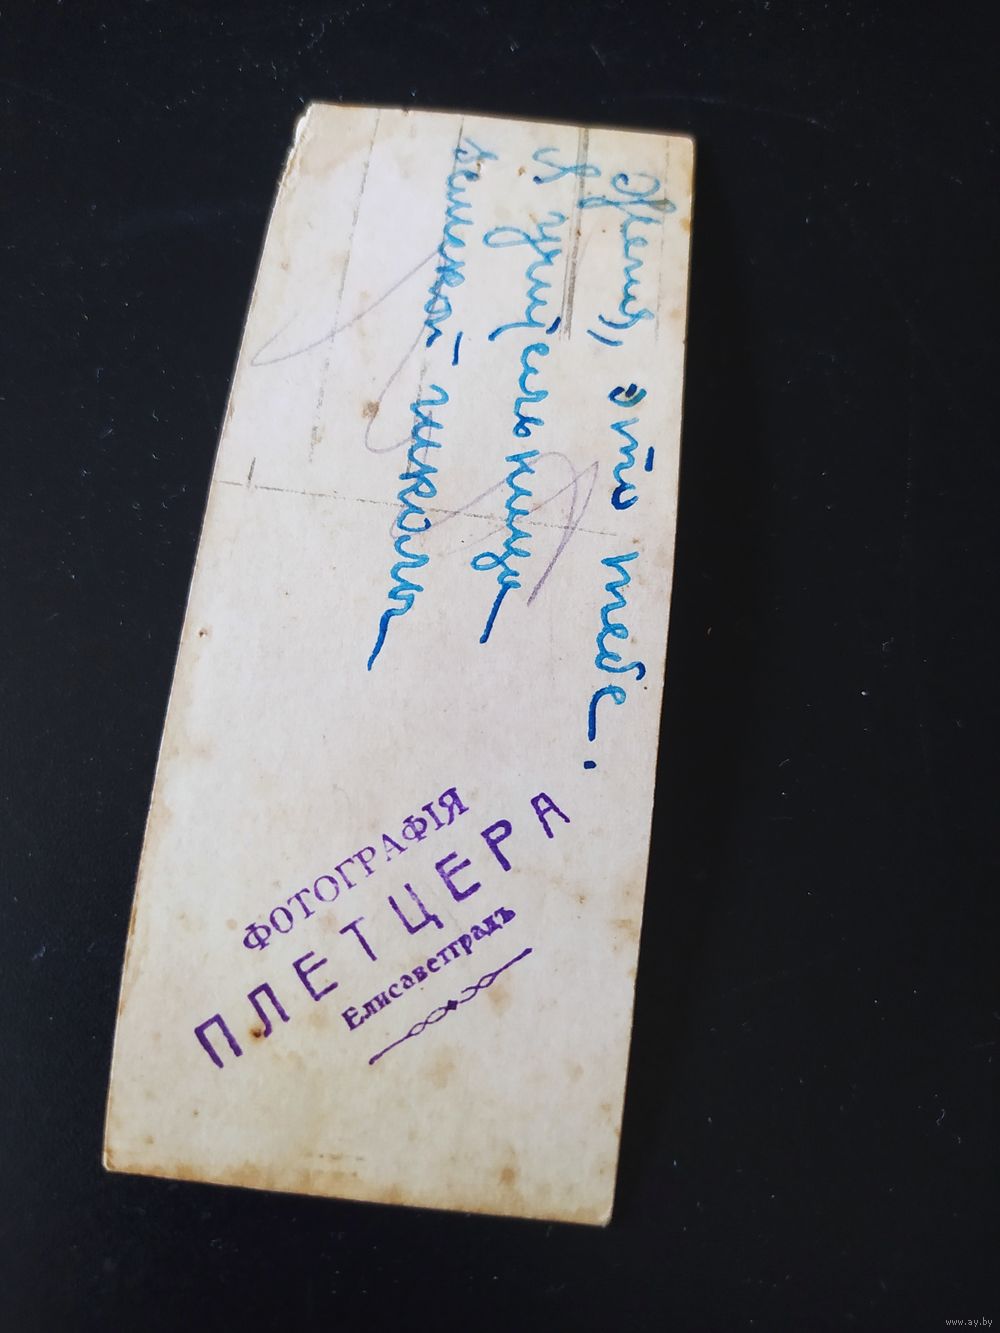 Женя, это тебе.
Я учительница
земской школы
ФОТОГРАФІЯ
ПЛЕТЦЕРА
Елисаветградъ
www.ay.by